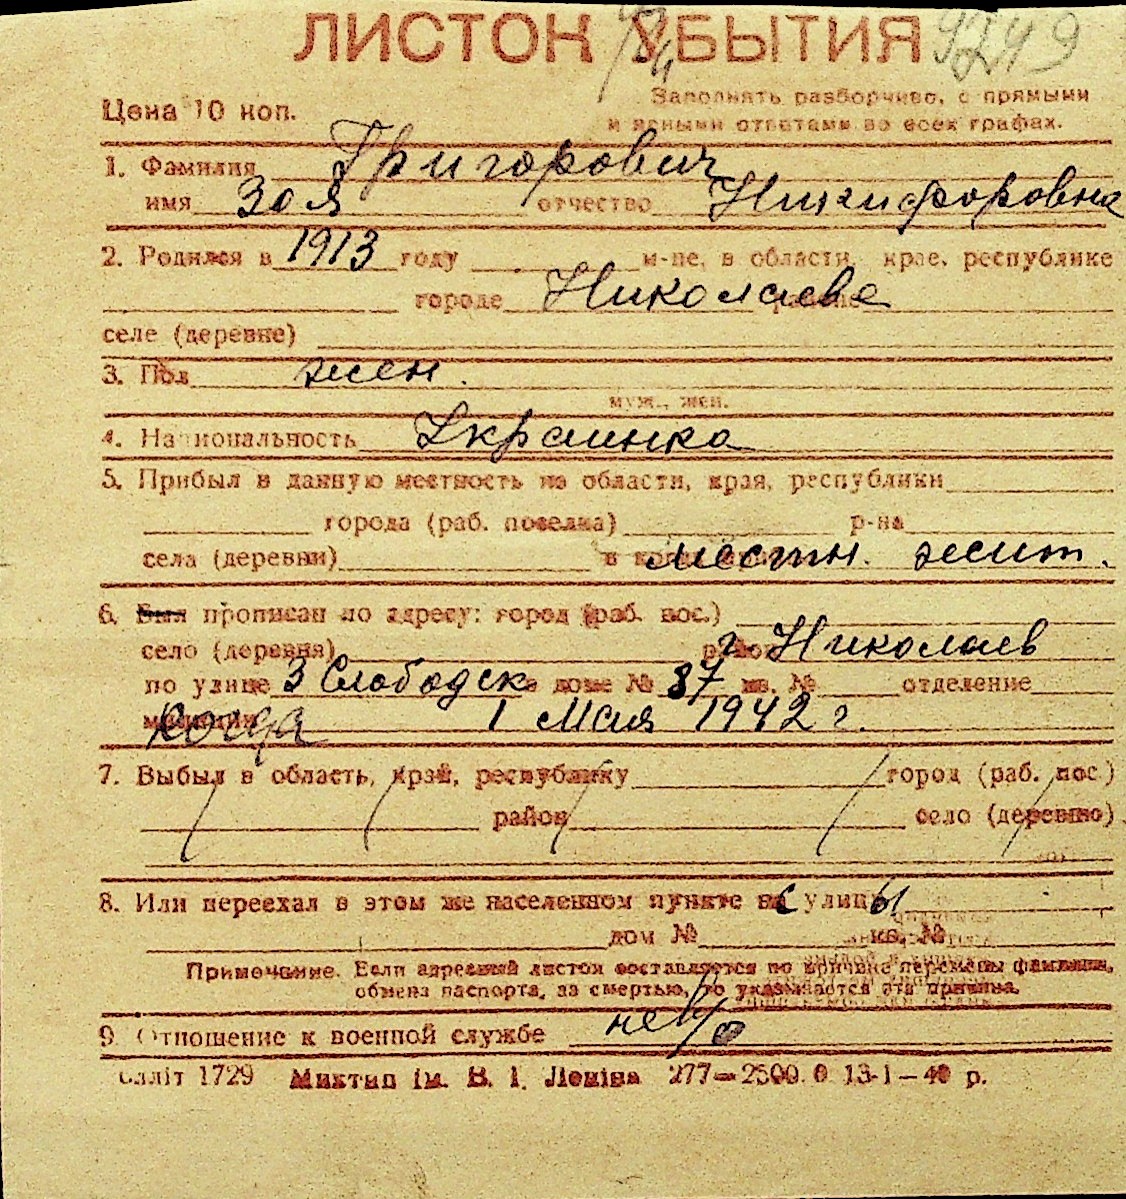 ЛИСТОК УБЫТИЯ 9249
Цена 10 коп.
Заполнять разборчиво, с прямыми
и ясными ответами во всех графах.
1. Фамилия Григорович
имя Зоя отчество Никифоровна
2. Родился в 1913 году м-це, в области, крае, республике
городе Николаеве
селе (деревне)
3. Пол жен.
муж., жен.
4. Национальность Украинка
5. Прибыл в данную местность из области, края, республики
города (раб. поселка) р-на
села (деревни) местн. жит.
6. Был прописан по адресу: город (раб. пос.)
село (деревня) район г. Николаев
по улице 3 Слободск. доме № 87 кв. № отделение
милиции когда 1 Мая 1942 г.
7. Выбыл в область, край, республику город (раб. пос.)
район село (деревню)
8. Или переехал в этом же населенном пункте с улицы
дом № кв. №
Примечание. Если адресный листок составляется по причине перемены фамилии,
обмена паспорта, за смертью, то указывается эта причина.
9. Отношение к военной службе нев/о
Оллiт 1729 Миктип iм. В. I. Ленiна 277—2500.0 13-1—40 р.